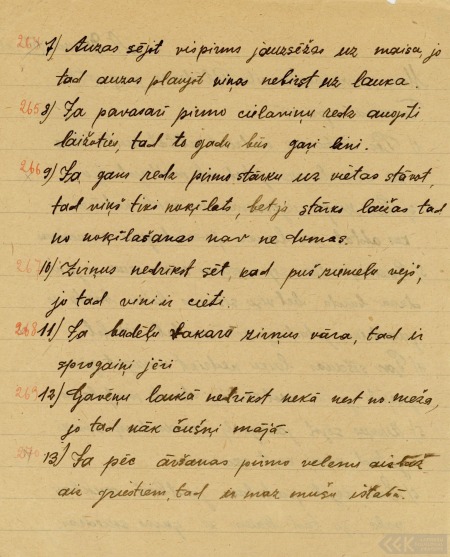 264 7) Auzas sējot vispirms jauzsēžas uz maisa, jo
tad auzas pļaujot viņas nebirst uz lauka.
265 8) Ja pavasarī pirmo cielaviņu redz augsti
laižoties, tad to gadu būs gaŗi lini.
266 9) Ja gans redz pirmo stārku uz vietas stāvot,
tad viņš tiks noķilāts, bet ja stārks laižas tad
no noķilāšanas nav ne domas.
267 10) Zirņus nedrīkst sēt, kad pūš ziemeļu vējš,
jo tad viņi ir cieti.
268 11) Ja budēļu vakarā zirņus vāra, tad ir
sprogaiņi jēri
269 12) Gavēņu laikā nedrīkst nekā nest no meža,
jo tad nāk čūsķi mājā.
270 13) Ja pēc āršanas pirmo velenu
aiz griestiem, tad ir maz mušu istabā.